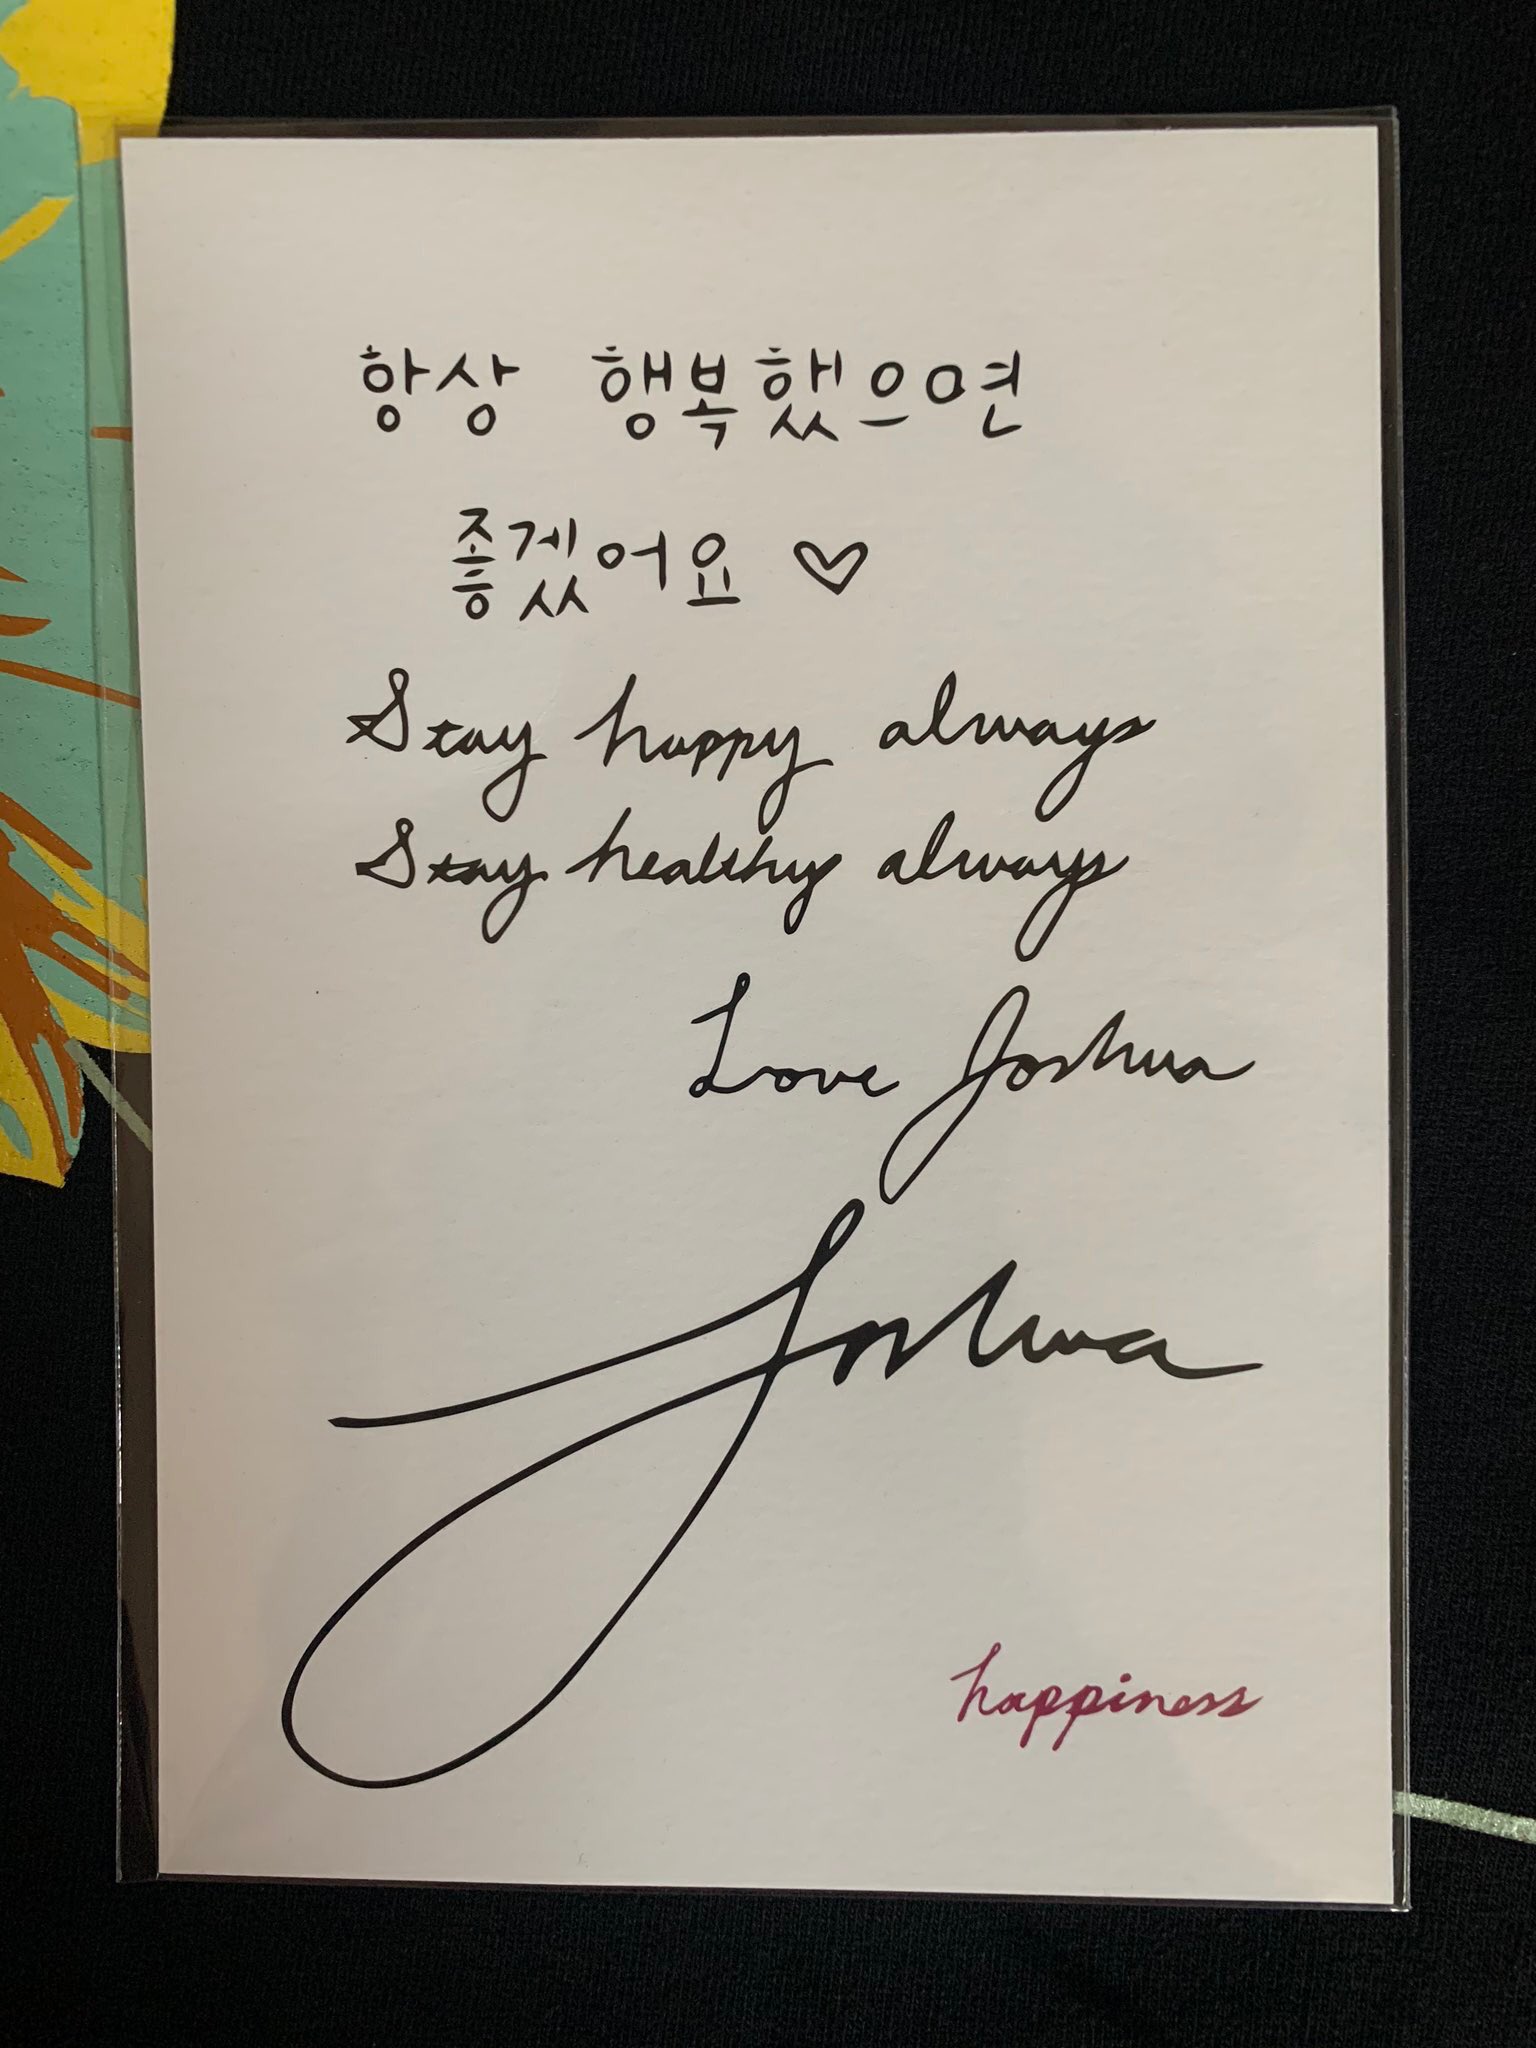 항상 행복했으면
좋겠어요 ♡
Stay happy always
Stay healthy always
Love Joshua
Joshua
happiness